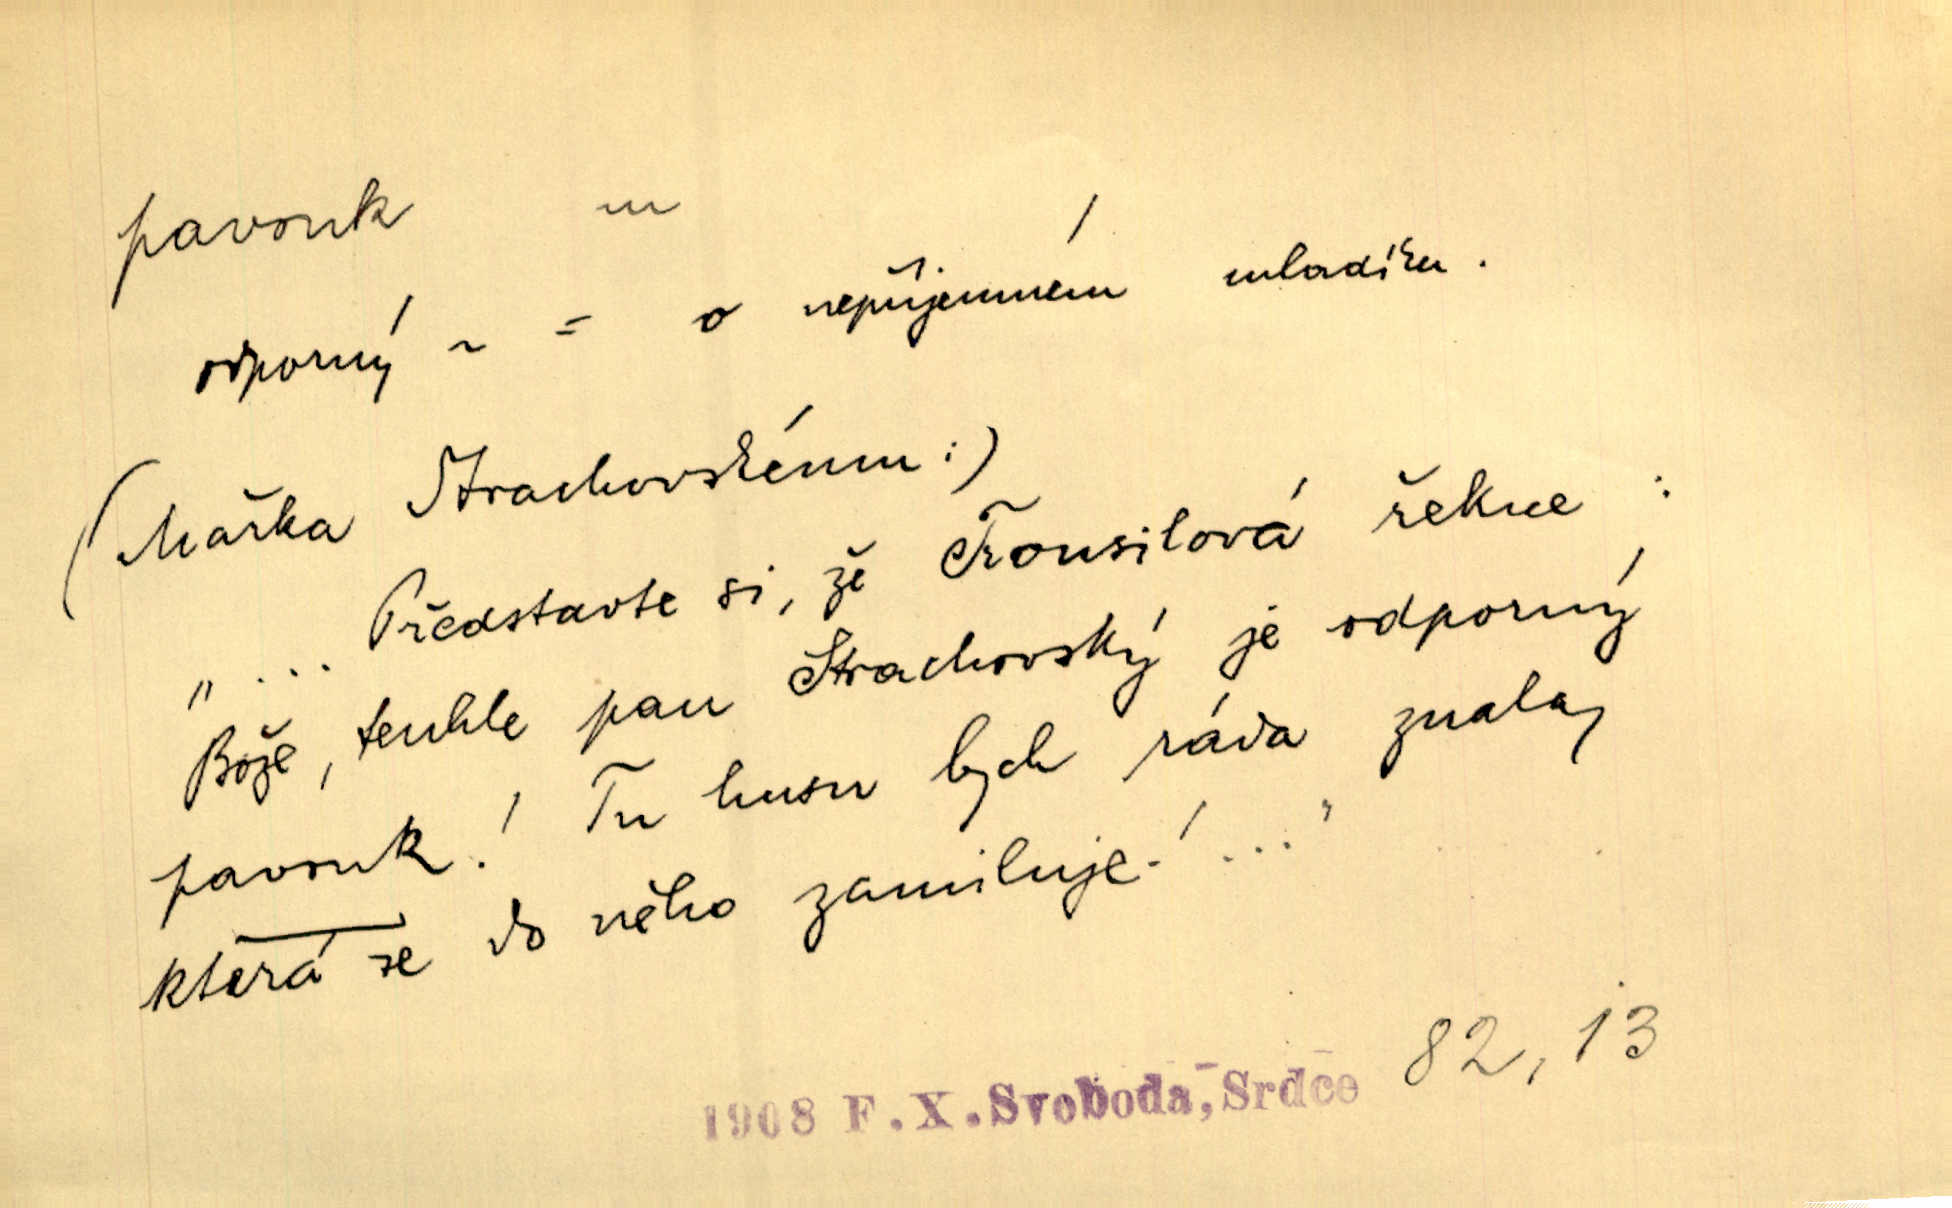 pavouk m
odporný ~ = o nepříjemném mladíku.
(Mařka Strachovskému:)
„... Představte si, že Trousilová řekne:
Bože, tenhle pan Strachovský je odporný
pavouk! Tu husu bych ráda znala,
která se do něho zamiluje! ..."
1908 F.X.Svoboda, Srdce 82,13